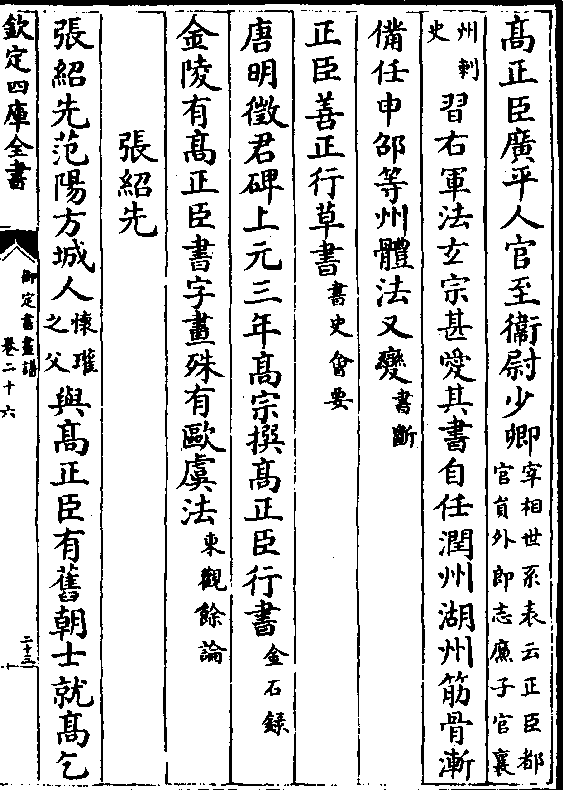 髙正臣廣平人官至衛尉少卿宰相世系表云正臣都官員外郎志亷子官襄
州刺史習右軍法玄宗甚愛其書自任潤州湖州筋骨漸
備任申邵等州體法又變書斷
正臣善正行草書書史會要
唐明徵君碑上元三年髙宗撰髙正臣行書金石録
金陵有髙正臣書字畫殊有歐虞法東觀餘論
張紹先
張紹先范陽方城人懷瓘之父與髙正臣有舊朝士就髙乞
欽定四庫全書
御定書畫譜
卷二十六
二十三